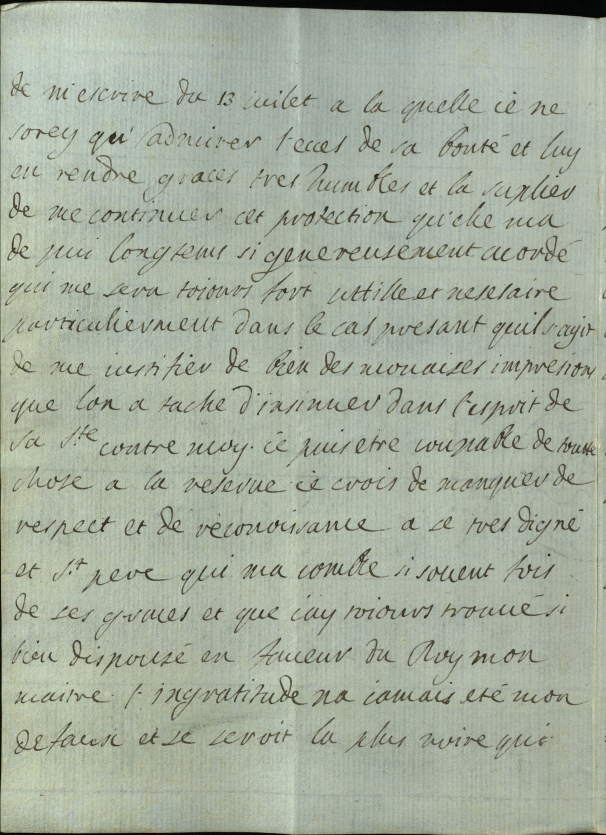 de m'escrire du 13 iuilet a la quelle ie ne
sorey qu'admirer l'exces de sa bonté et luy
en rendre graces tres humbles et la suplier
de me continuer cet protection qu'elle ma
de puis longtems si genereusement acordé
qui me sera toiours fort uttille et nesesaire
particulierment dans le cas presant quil s'agit
de me iustifier de bien des mouaises impresions
que lon a tache d'insinuer dans l'esprit de
sa Ste contre moy. ie puis etre coupable de toutte
chose a la reserve ie crois de manquer de
respect et de reconoissance a se tres digne
et St pere qui ma comble si souent fois
de ses graces et que i'ay toiours trouué si
bien dispouzé en faueur du Roy mon
maitre l'ingratitude na iamais eté mon
defaut et se seroit la plus noire qui